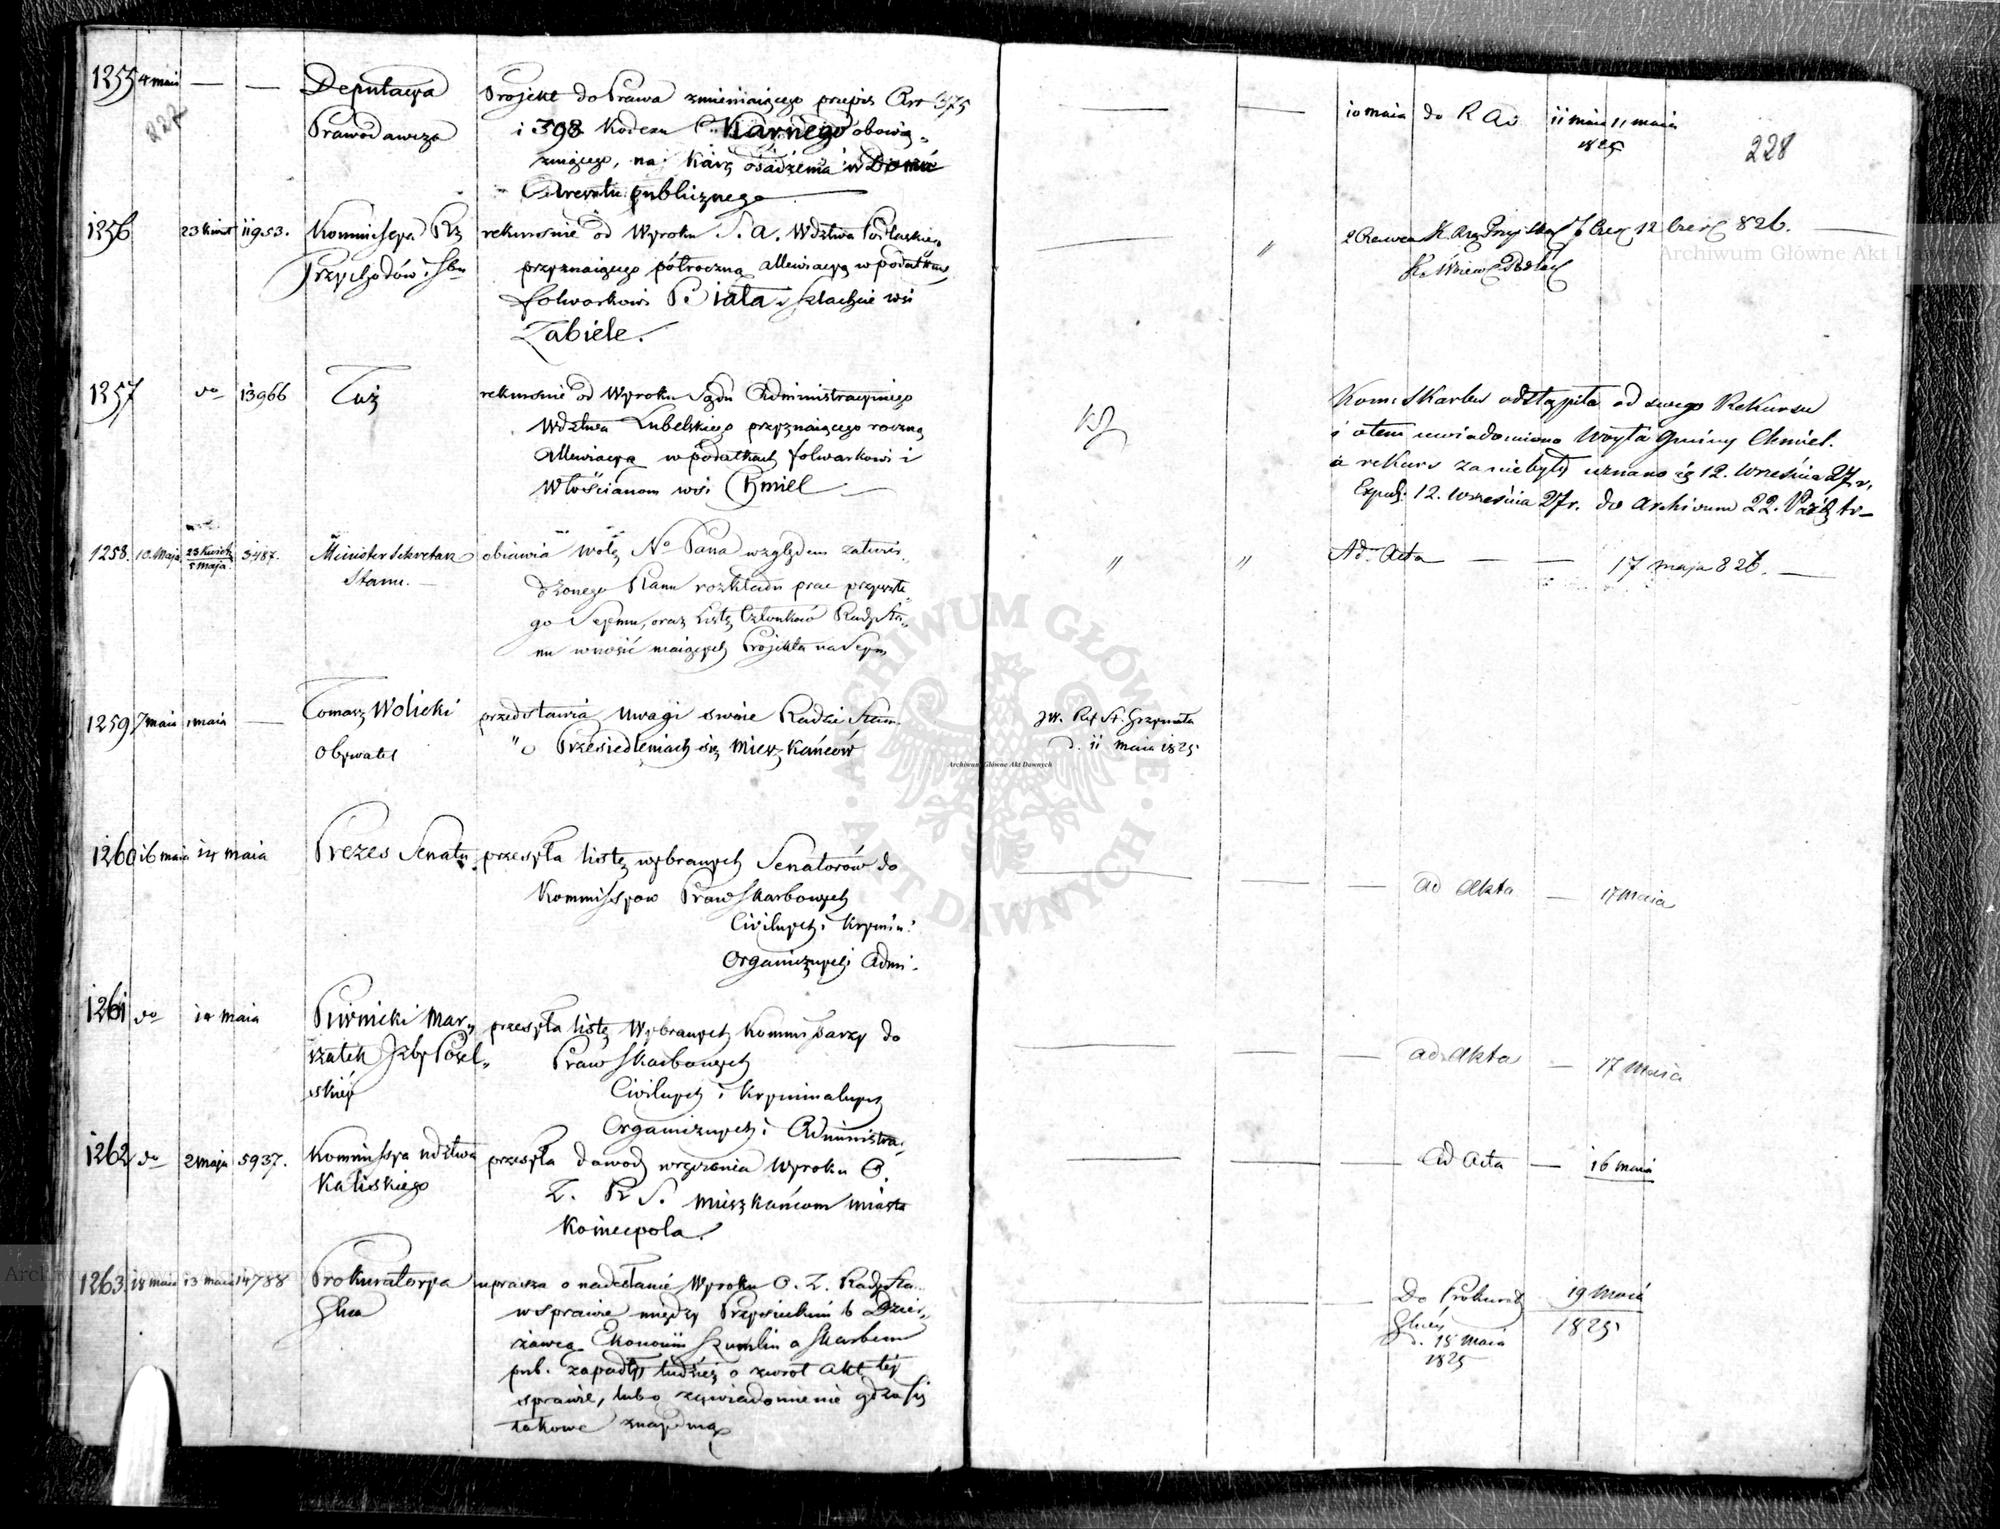 1255 4 maia — — Deputacya Projekt do Prawa zmieniaiącego przepis Art 375
227 Prawodawcza i 398 Kodexu Karnego obowią„
zuiącego, na karę osadzenia w Domu
publicznego
— — 10 maia do R Ad 11 maia 11 maia
1825
228
1256 23 kwiet 11953. Kommissya Rz rekursuie od Wyroku S. A. Wdztwa Podlaskie
Przychodów i Sku przyznaiącego półroczną allewiacyą w podatku
folwarkowi Biała i szlachcie wsi
Zabiele.
" 12 Czer 826. —
1257 do 13966 Taż rekursuie od Wyroku Sądu Administracyinego
Wdztwa Lubelskiego przyznaiącego roczną
allewiacyą w podatkach folwarkowi i
Włościanom wsi Chmiel —
Kom: Skarbu odstąpiła od swego Rekursu
i otem uwiadomiono Woyta Gminy Chmiel.
a rekurs za niebyły uznano 12. Września 27 r.
Exped: 12. Września 27 r. do Archivum 22.
1258. 10. Maja 23 Kwiet 3487. Minister Sekretarz obiawia wolę No Pana względem zatwier
5 Maja Stanu. — dzonego Planu rozkładu prac przyszłe„
go Seymu, oraz Listę Członków Rady Sta„
nu wnosić maiących Projekta na Seym
" " Ad Acta — — 17 maja 826. —
1259 7 maia 1 maia — Tomasz Wolicki przedstawia Uwagi swoie Radzie Stanu
Obywatel "o Przesiedleniach się Mieszkańców
JW. Ref St. Grzymała
d. 11 maia 1825
1260 16 maia 14 maia Prezes Senatu przesyła listę wybranych Senatorów do
Kommissyow Praw Skarbowych
Civilnych i Krymin:
Organicznych i Admi:
— — — ad Akta — 17 maia
1261 do 14 maia Piwnicki Mar„ przesyła listę Wybranych Kommissarzy do
szałek Izby Posel„ Praw Skarbowych
skiéy Civilnych i Kryminalnych
Organicznych i Administra:
— — — ad Akta — 17 Maia
1262 do 2 maja 5937. Kommissya wdztwa przesyła dowod wręczenia Wyroku O.
Kaliskiego Z. R S. Mieszkańcom miasta
Koniecpola.
— — — ad Acta — 16 maia
1263. 18 maia 13 maia 14788 Prokuratorya uprasza o nadesłanie Wyroku O. Z. Rady Sta„
Glna w sprawie między b Dzier„
żawcą Ekonomii Szumlin a Skarbem
pub. zapadły tudzież o zwrot Akt téy
sprawie, lub o zawiadomienie gdzie się
takowe znayduią
— — Do Prokurat 19 Maia
Glnéy 1825
d. 18 maia
1825
ARCHIWUM GŁÓWNE AKT DAWNYCH
Archiwum Główne Akt Dawnych
Archiwum Główne Akt Daw